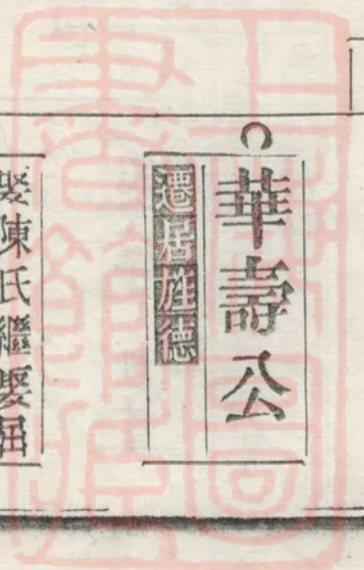 華壽公
遷居旌德
娶陳氏繼娶屈